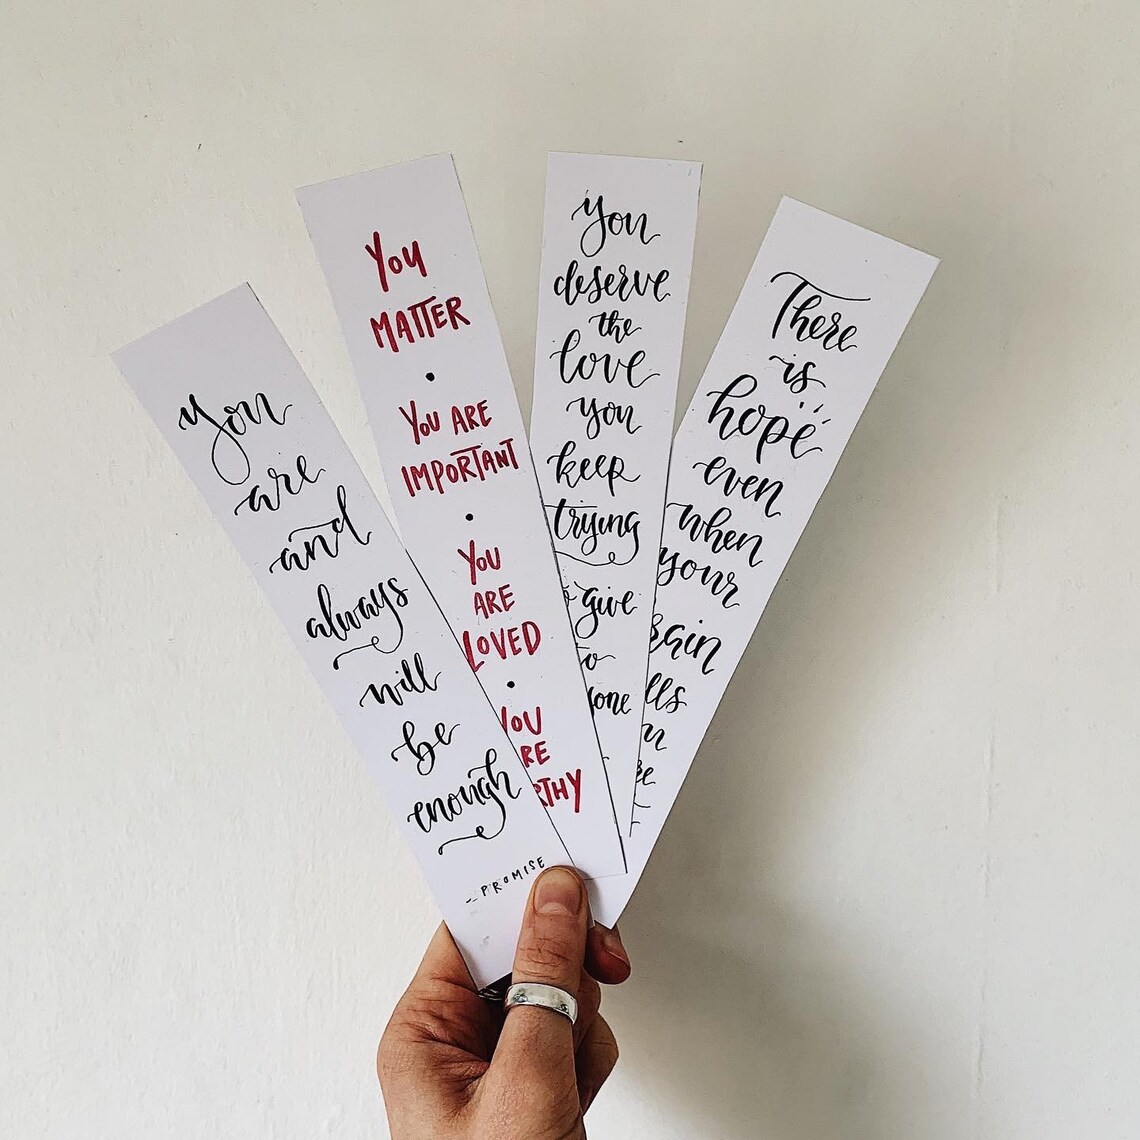 you
are
and
always
will
be
enough
-- PROMISE
YOU
MATTER
•
YOU ARE
IMPORTANT
•
YOU
ARE
LOVED
•
YOU
you
deserve
the
love
you
keep
trying
give
There
is
hope
even
when
your